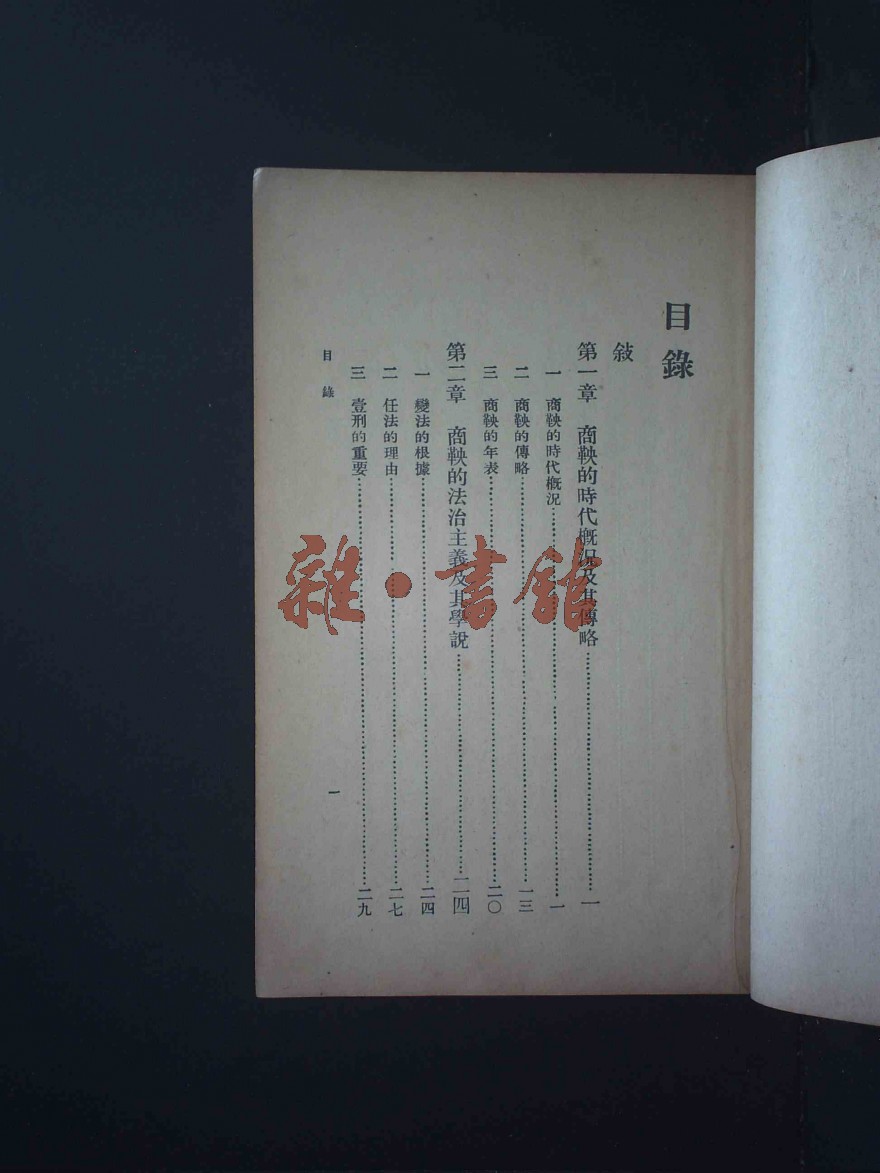 目錄
敍
第一章 商鞅的時代概況及其傳略……一
一 商鞅的時代概況……一
二 商鞅的傳略……一三
三 商鞅的年表……二〇
第二章 商鞅的法治主義及其學說……二四
一 變法的根據……二四
二 任法的理由……二七
三 壹刑的重要……二九
目錄
一
雜·書館